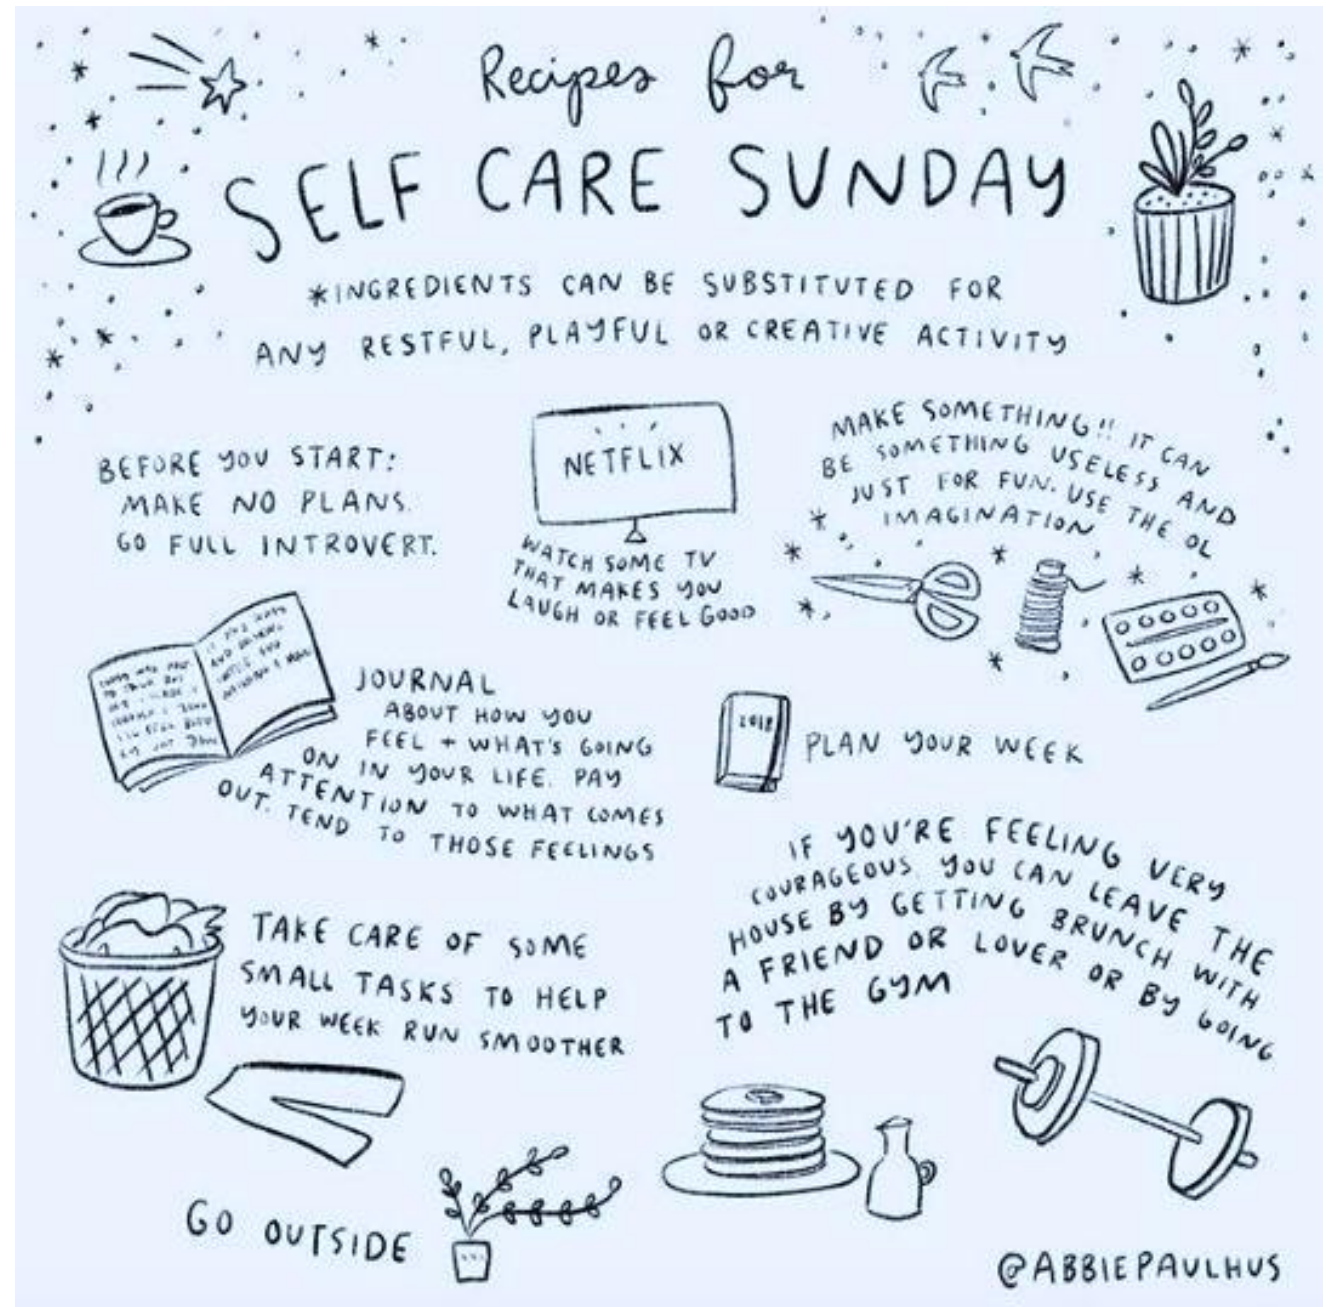 Recipes for
SELF CARE SUNDAY
*INGREDIENTS CAN BE SUBSTITUTED FOR
ANY RESTFUL, PLAYFUL OR CREATIVE ACTIVITY
BEFORE YOU START:
MAKE NO PLANS.
GO FULL INTROVERT.
NETFLIX
WATCH SOME TV
THAT MAKES YOU
LAUGH OR FEEL GOOD
MAKE SOMETHING!! IT CAN
BE SOMETHING USELESS AND
JUST FOR FUN. USE THE OL
IMAGINATION
JOURNAL
ABOUT HOW YOU
FEEL + WHAT'S GOING
ON IN YOUR LIFE. PAY
ATTENTION TO WHAT COMES
OUT. TEND TO THOSE FEELINGS
2018
PLAN YOUR WEEK
TAKE CARE OF SOME
SMALL TASKS TO HELP
YOUR WEEK RUN SMOOTHER
IF YOU'RE FEELING VERY
COURAGEOUS, YOU CAN LEAVE THE
HOUSE BY GETTING BRUNCH WITH
A FRIEND OR LOVER OR BY GOING
TO THE GYM
GO OUTSIDE
@ABBIEPAULHUS